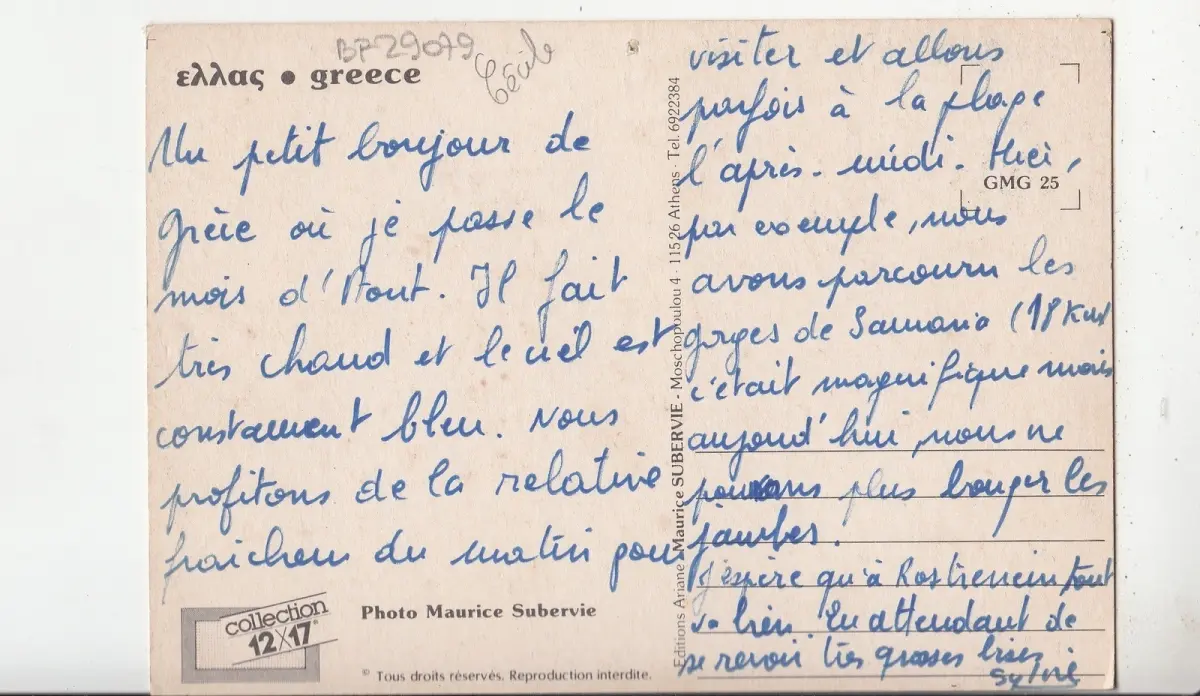 BF29079
Cécile
ελλας • greece
Un petit bonjour de
Grèce où je passe le
mois d'Août. Il fait
très chaud et le ciel est
constamment bleu. Nous
profitons de la relative
fraicheur du matin pour
visiter et allons
parfois à la plage
l'après-midi. Hier,
par exemple, nous
avons parcouru les
gorges de Samaria (18 km)
c'était magnifique mais
aujourd'hui, nous ne
pouvons plus bouger les
jambes.
J'espère qu'à Rostrenen tout
va bien. En attendant de
se revoir très grosses bises
Sylvie
GMG 25
Editions Ariane - Maurice SUBERVIE - Moschopoulou 4 - 115 26 Athens - Tel. 6922384
collection
12X17
Photo Maurice Subervie
© Tous droits réservés. Reproduction interdite.